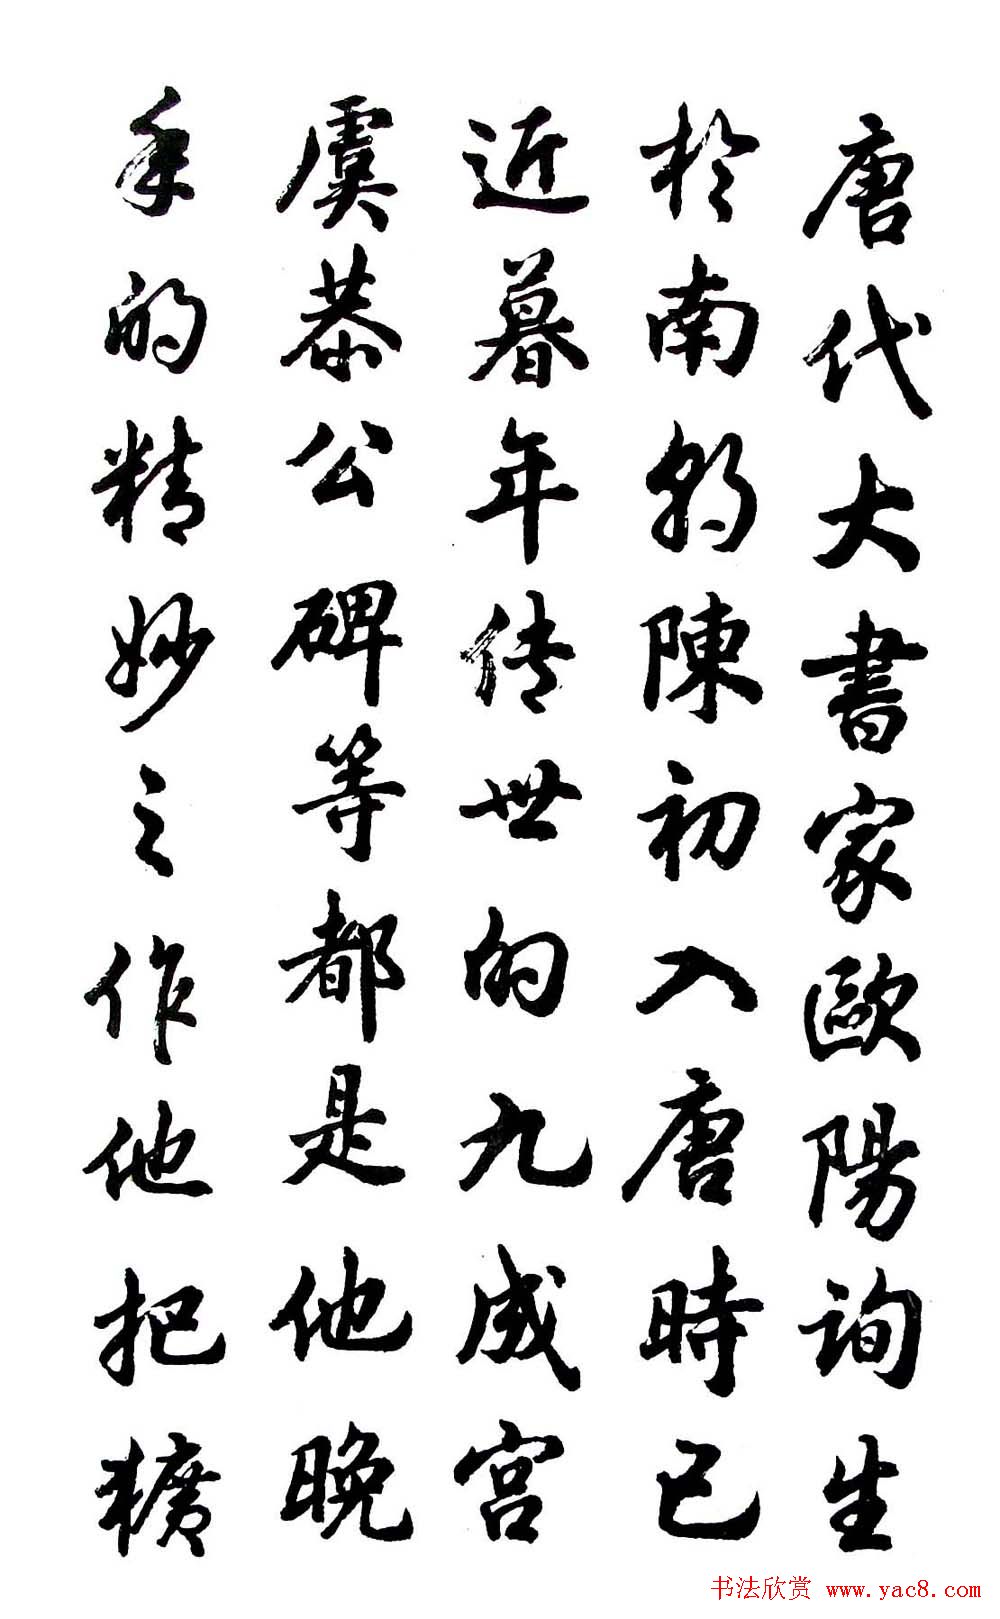 唐代大書家歐陽詢生
於南朝陳初入唐時已
近暮年傳世的九成宮
虞恭公碑等都是他晚
年的精妙之作他把獷
书法欣赏 www.yac8.com